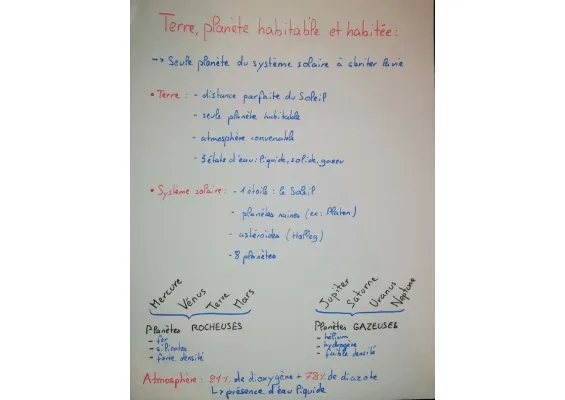 Terre, planète habitable et habitée:
→ Seule planète du système solaire à abriter la vie
• Terre : - distance parfaite du Soleil
- seule planète habitable
- atmosphère convenable
- 3 états d'eau: liquide, solide, gazeu
• Système solaire: - 1 étoile : le Soleil
- planètes naines (ex: Pluton)
- astéroïdes (Halley)
- 8 planètes
Mercure Vénus Terre Mars
Jupiter Saturne Uranus Neptune
Planètes ROCHEUSES
- fer
- silicates
- forte densité
Planètes GAZEUSES
- hélium
- hydrogène
- faible densité
Atmosphère : 21% de dioxygène + 78% de diazote
↳ présence d'eau liquide